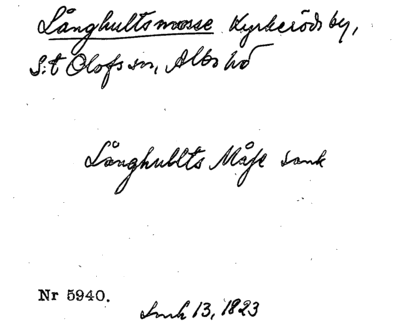 Långhultsmosse Kyrkeröds by,
S:t Olofs sn, Albo hd
Långhullts Måse sank
Nr 5940.
13, 1823